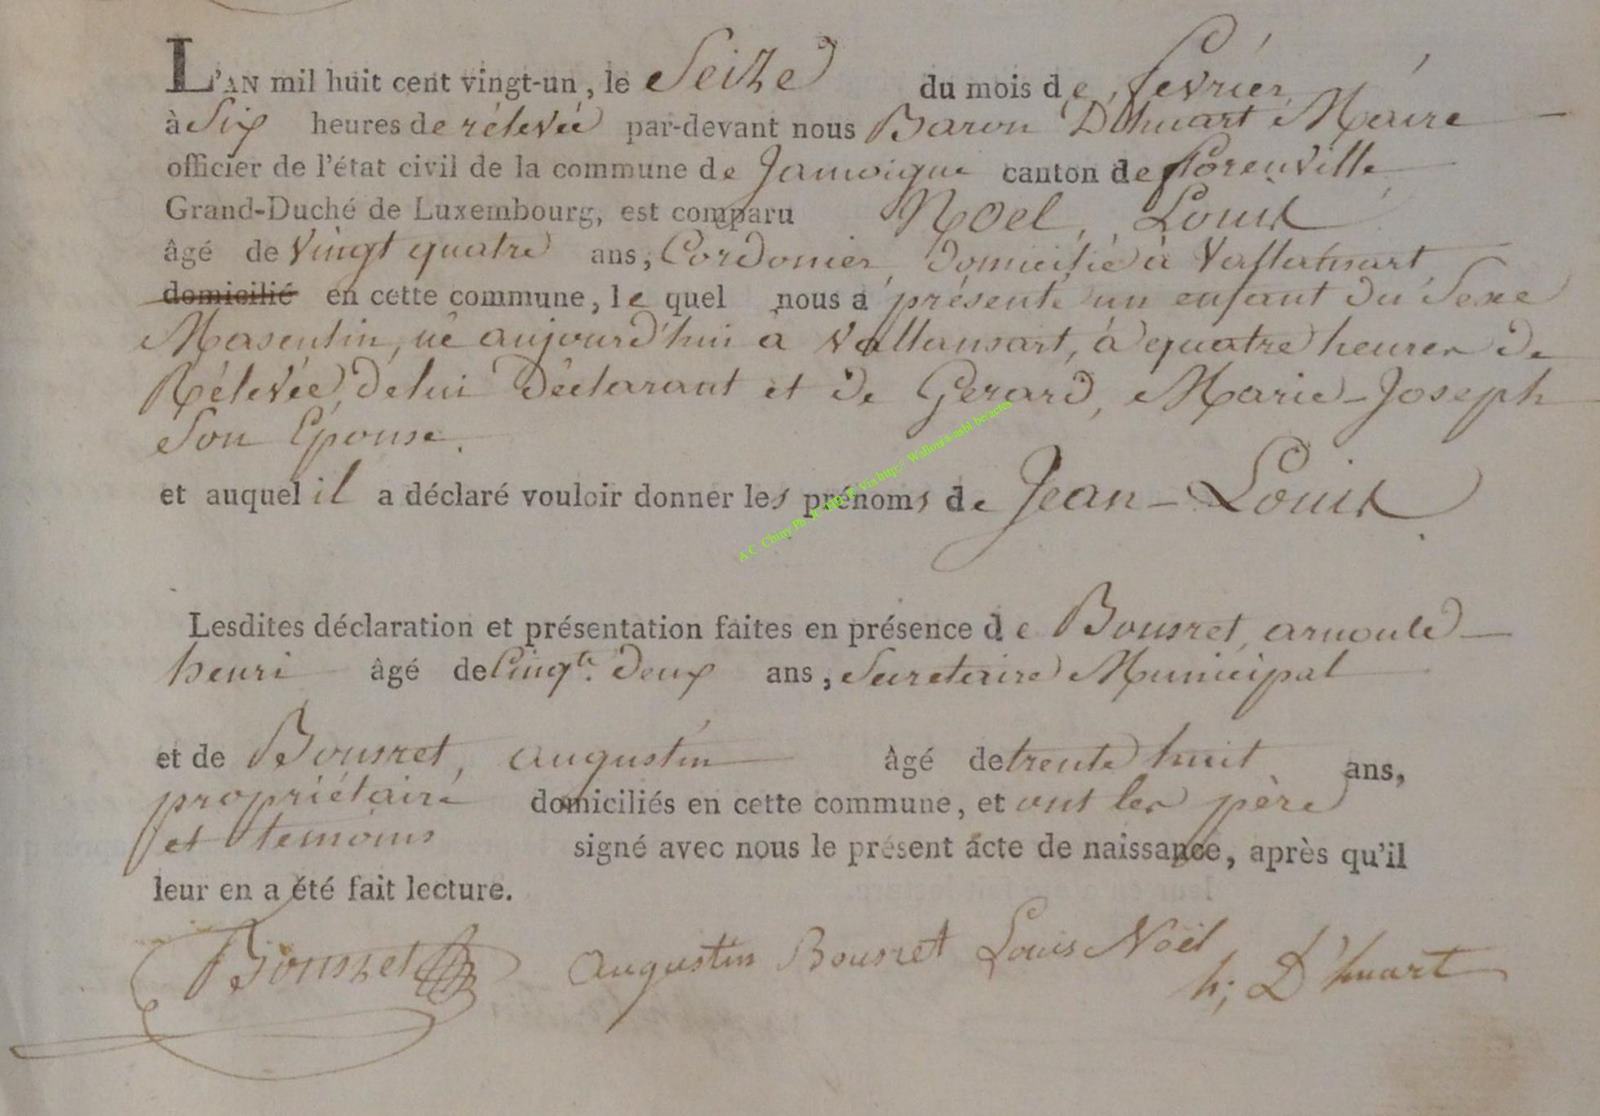 L'AN mil huit cent vingt-un, le Seize du mois de février
à Six heures de rélevée par-devant nous Baron D'huart Maire
officier de l'état civil de la commune de Jamoigne canton de florenville
Grand-Duché de Luxembourg, est comparu Noel, Louis
âgé de Vingt quatre ans, Cordonier, domicilié à Vallansart,
domicilié en cette commune, le quel nous a présenté un enfant du Sexe
Masculin, né aujourd'hui a Vallansart, à quatre heures de
Rélevée, de lui Déclarant et de Gerard, Marie-Joseph
Son Epouse.
et auquel il a déclaré vouloir donner les prénoms de Jean-Louis
Lesdites déclaration et présentation faites en présence de Bousret, arnould
henri âgé de Cinqte. deux ans, Secretaire Municipal
et de Bousret, augustin âgé de trente huit ans,
propriétaire domiciliés en cette commune, et ont les père
et temoins signé avec nous le présent acte de naissance, après qu'il
leur en a été fait lecture.
Bousret augustin Bousret Louis Noël
h; D'huart